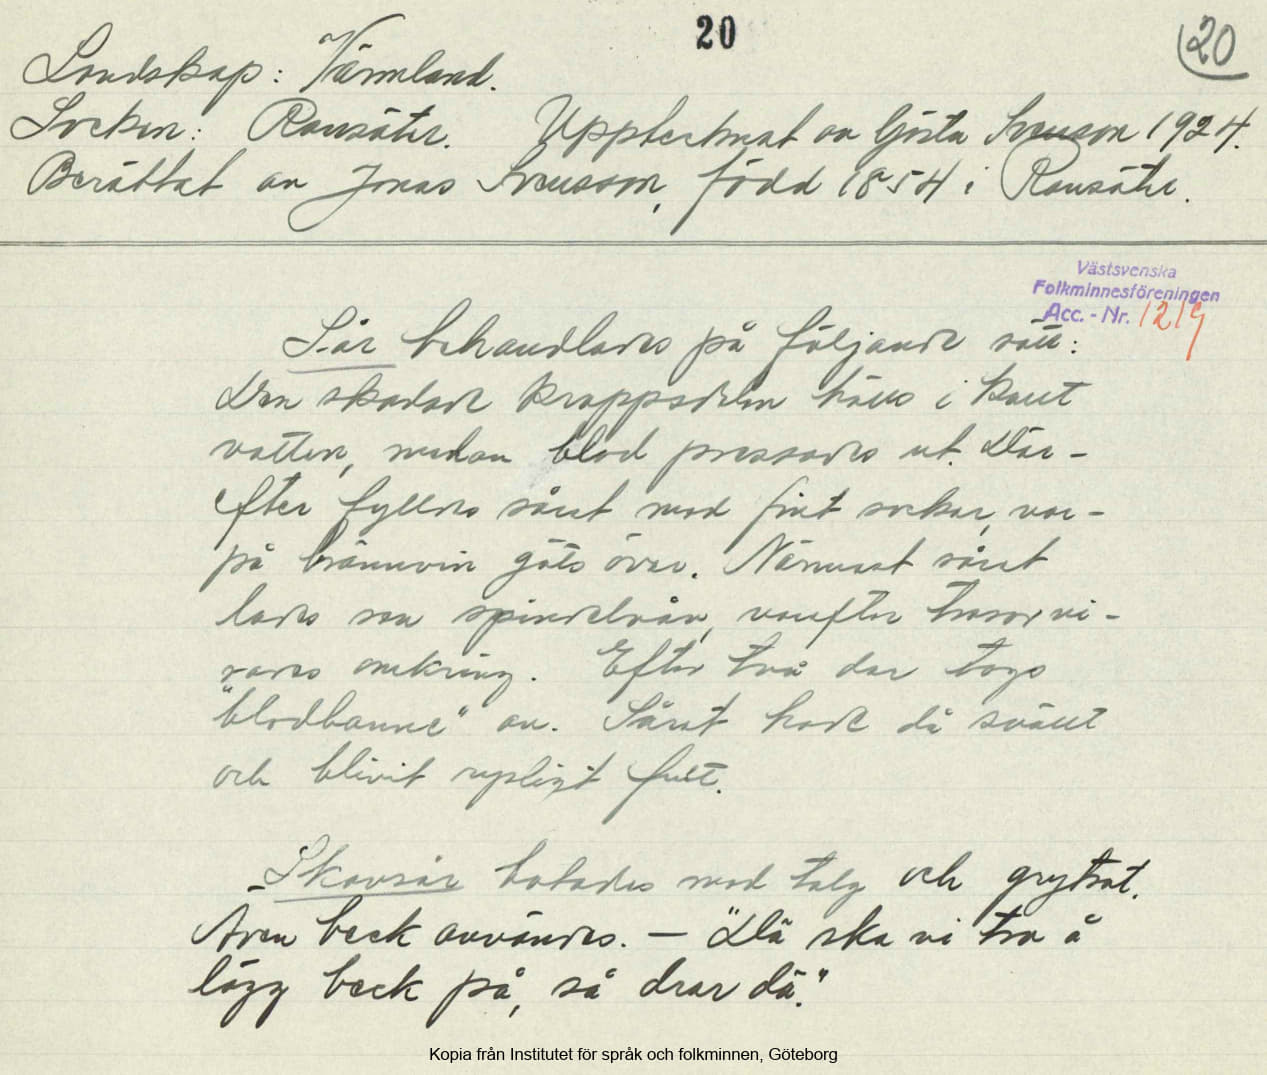 20
20
Landskap: Värmland.
Socken: Ransäter. Upptecknat av Gösta Svenson 1924.
Berättat av Jonas Svensson, född 1854 i Ransäter.
Västsvenska
Folkminnesföreningen
Acc. - Nr. 1219
Sår behandlades på följande sätt:
Den skadade kroppsdelen hölls i kallt
vatten, medan blod pressades ut. Där-
efter fylldes såret med fint socker, var-
på brännvin göts över. Närmast såret
lades ren spindelväv, varefter trasor vi-
rades omkring. Efter två dar togs
"blodbanne" av. Såret hade då svällt
och blivit rysligt fult.
Skavsår botades med talg och grytsot.
Även beck användes. — "Dä ska vi ta å
lägg beck på, så drar dä."
Kopia från Institutet för språk och folkminnen, Göteborg